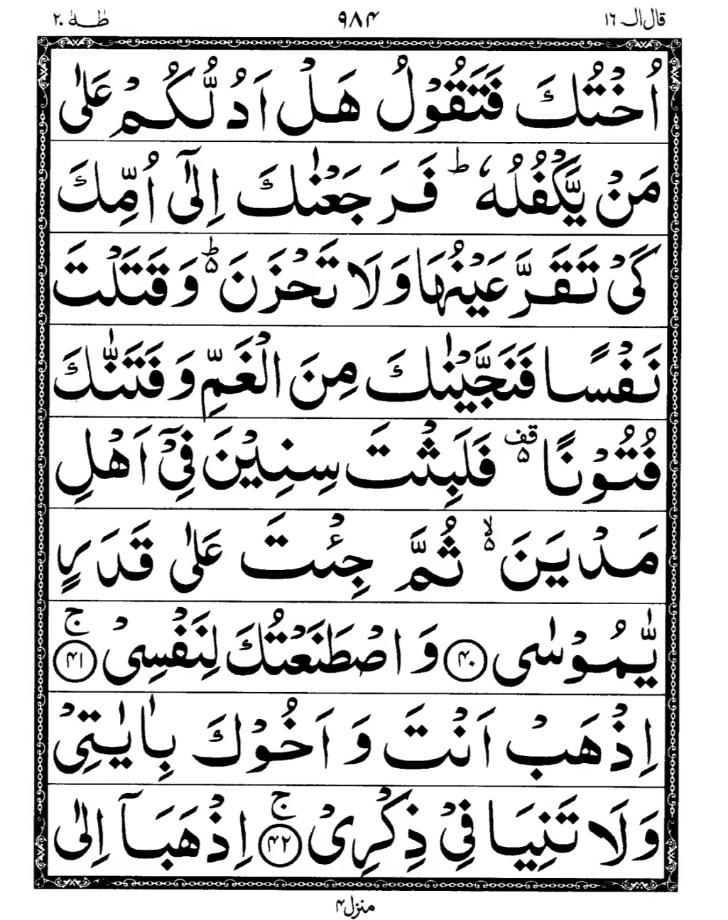 قال الم ١٦ ٩٨٤ طٰهٰ ٢٠
اُخْتُكَ فَتَقُوْلُ هَلْ اَدُلُّكُمْ عَلٰى
مَنْ يَّكْفُلُهٗ ؕ فَرَجَعْنٰكَ اِلٰۤى اُمِّكَ
كَىْ تَقَرَّ عَيْنُهَا وَلَا تَحْزَنَ ۬ؕ وَقَتَلْتَ
نَفْسًا فَنَجَّيْنٰكَ مِنَ الْغَمِّ وَفَتَنّٰكَ
فُتُوْنًا ۬ قف فَلَبِثْتَ سِنِيْنَ فِىْۤ اَهْلِ
مَدْيَنَ ۬ۙ ثُمَّ جِئْتَ عَلٰى قَدَرٍ
يّٰمُوْسٰى ﴿۴۰﴾ وَاصْطَنَعْتُكَ لِنَفْسِىْ ۚ‏﴿۴۱﴾
اِذْهَبْ اَنْتَ وَاَخُوْكَ بِاٰيٰتِىْ
وَلَا تَنِيَا فِىْ ذِكْرِىْ ۚ‏﴿۴۲﴾ اِذْهَبَاۤ اِلٰى
منزل ۴